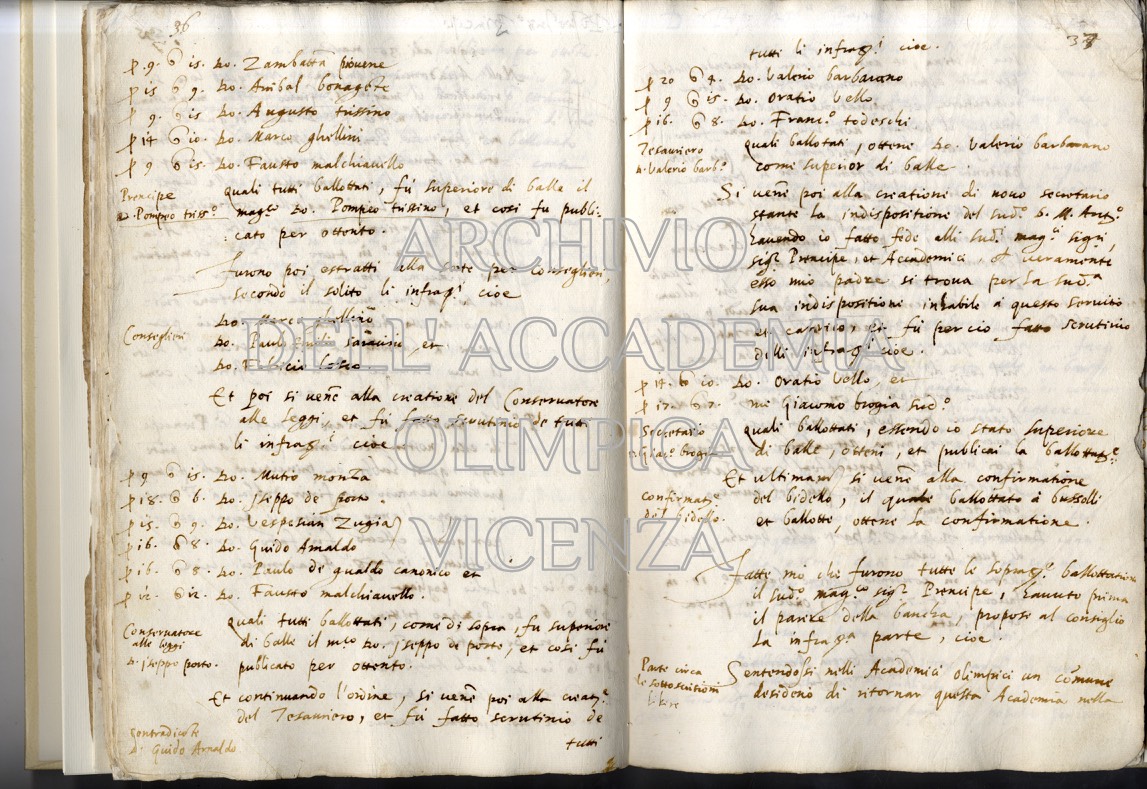 36
p 9. c is. Do. Zambatta piovene
p is c 9. Do. Anibal bonagete
p 9. c is Do. Augusto trissino
p 14 c io. Do. Marco ghellini
p 9 c is. Do. Fausto malchiavello
Principe
D. Pompeo triss.o
quali tutti ballottati, fù superiore di balle il
mag.co Do. Pompeo trissino, et cosi fu publi-
cato per ottento.
Furono poi estratti alla sorte per Conseglieri,
secondo il solito li infras.ti cioe
Conseglieri
Do. Marco ghellino
Do. Paulo Emili et
Do. Losco.
Et poi si venè alla creatione del Conservatore
alle leggi, et fù fatto scrutinio de tutti
li infras.ti cioe
p 9 c is. Do. Mutio monza
p 18. c 6. Do. Iseppo de porto.
p is. c 9. Do. Vespesian Zugian
p 16. c 8. Do. Guido Arnaldo
p 16. c 8. Do. Paulo de gualdo canonico et
p 12. c 12. Do. Fausto malchiavello.
Conservatore
alle leggi
D. Iseppo porto.
quali tutti ballottati, come di sopra, fu superiore
di balle il m.co Do. Iseppo de porto, et cosi fù
publicato per ottento.
Et continuando l'ordine, si venè poi alla creat.ne
del Tesauriero, et fù fatto scrutinio de
contradicete
D. Guido Arnaldo
tutti
37
tutti li infras.ti cioe.
p 20 c 4. Do. Valerio barbarano
p 9 c is. Do. Oratio Vello
p 16. c 8. Do. Franc.o todeschi
Tesauriero
D. Valerio barb.o
quali ballotati, ottene Do. Valerio barbarano
come superior di balle.
Si venè poi alla creatione di novo secretario
stante la indispositione del sud.o D. M. Ant.o
havendo io fatto fede alli sud.ti mag.ci sig.ri,
sig.r Prencipe, et Academici, che veramente
esso mio padre si trova per la sud.a
sua indispositione inhabile a questo servitio
et carico, et fù percio fatto scrutinio
delli infras.ti cioe.
p 14. c io. Do. Oratio Vello, et
p 17. c 7. me Giacomo brogia sud.o
Secretario
Giac.o brogia
quali ballottati, essendo io stato superiore
di balle, otteni, et publicai la ballottat.ne
Et ultimam.te si venè alla confirmatione
confirmat.ne
del bidello.
del bidello, il quale ballottato à bussolli
et ballotte, ottene la confirmatione.
Fatte mo che furono tutte le sopras.te ballottationi
il sud.o mag.co sig.r Prencipe, havuto prima
il parere della bancha, propose al consiglio
la infras.a parte, cioe.
Parte circa
le sottoscritioni
libere
Sentendosi nelli Academici olimpici un comune
desiderio di ritornar questa Academia nella
ARCHIVIO
DELL'ACCADEMIA
OLIMPICA
VICENZA